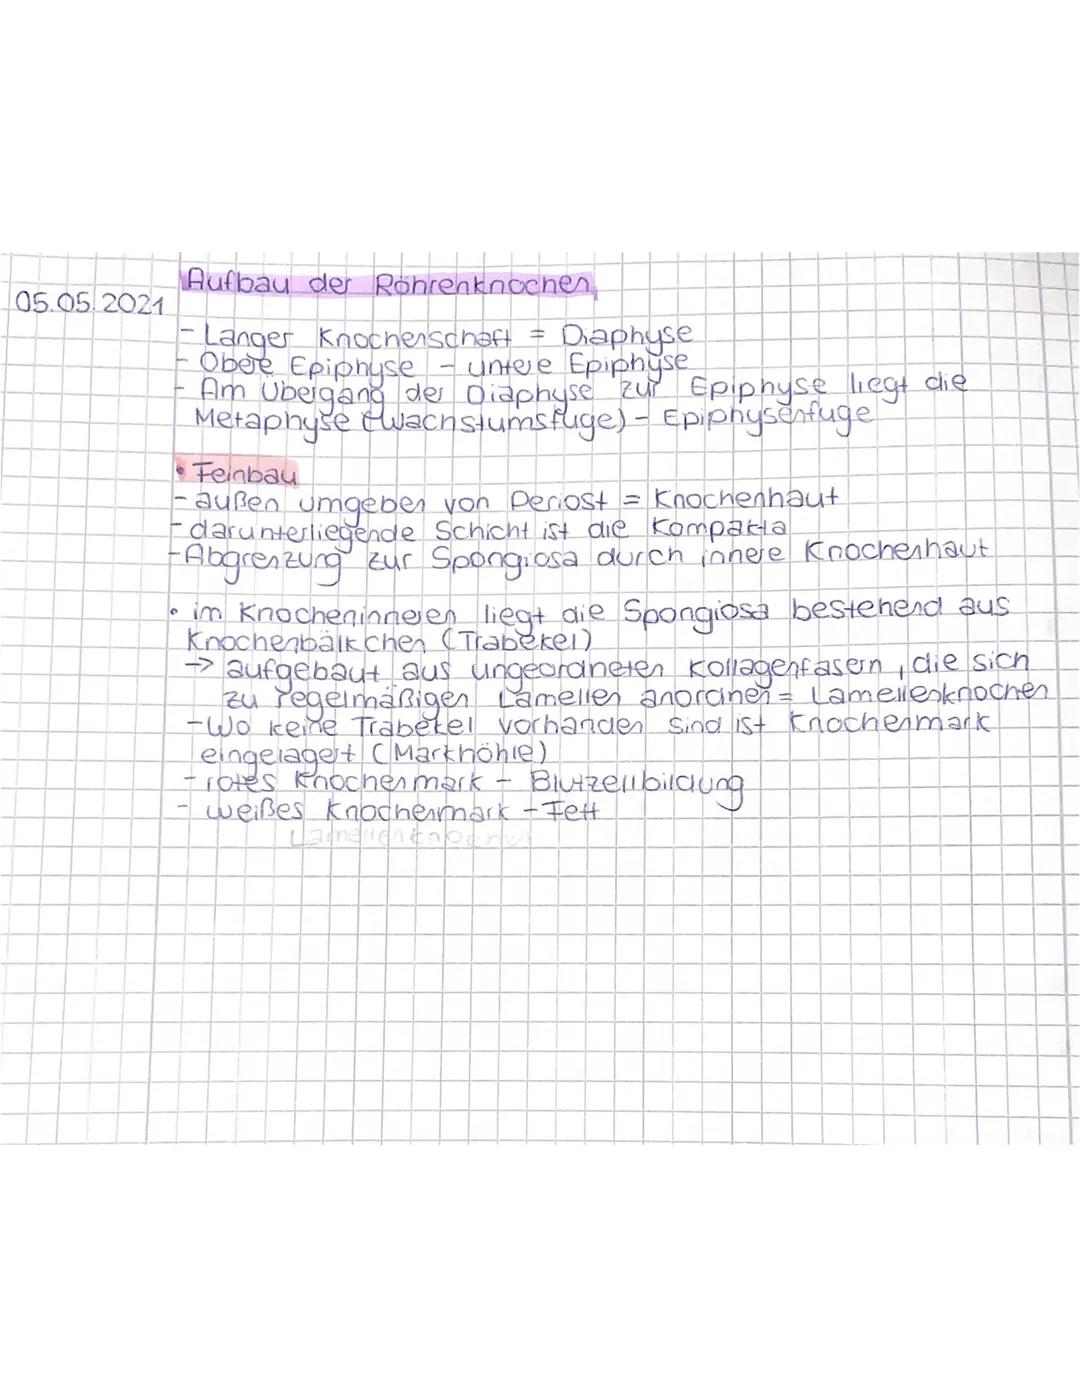 Aufbau der Röhrenknochen
05.05.2021
- Langer Knochenschaft = Diaphyse
- Obere Epiphyse - untere Epiphyse
- Am Übergang der Diaphyse zur Epiphyse liegt die
Metaphyse (Wachstumsfuge) - Epiphysenfuge
• Feinbau
- außen umgeben von Periost = Knochenhaut
- darunterliegende Schicht ist die Kompakta
- Abgrenzung zur Spongiosa durch innere Knochenhaut
• im Knocheninneren liegt die Spongiosa bestehend aus
Knochenbälkchen (Trabekel)
→ aufgebaut aus ungeordneten Kollagenfasern, die sich
zu regelmäßigen Lamellen anordnen = Lamellenknochen
- Wo keine Trabekel vorhanden sind ist Knochenmark
eingelagert (Markhöhle)
- rotes Knochenmark - Blutzellbildung
- weißes Knochenmark - Fett
Lamellenknochen